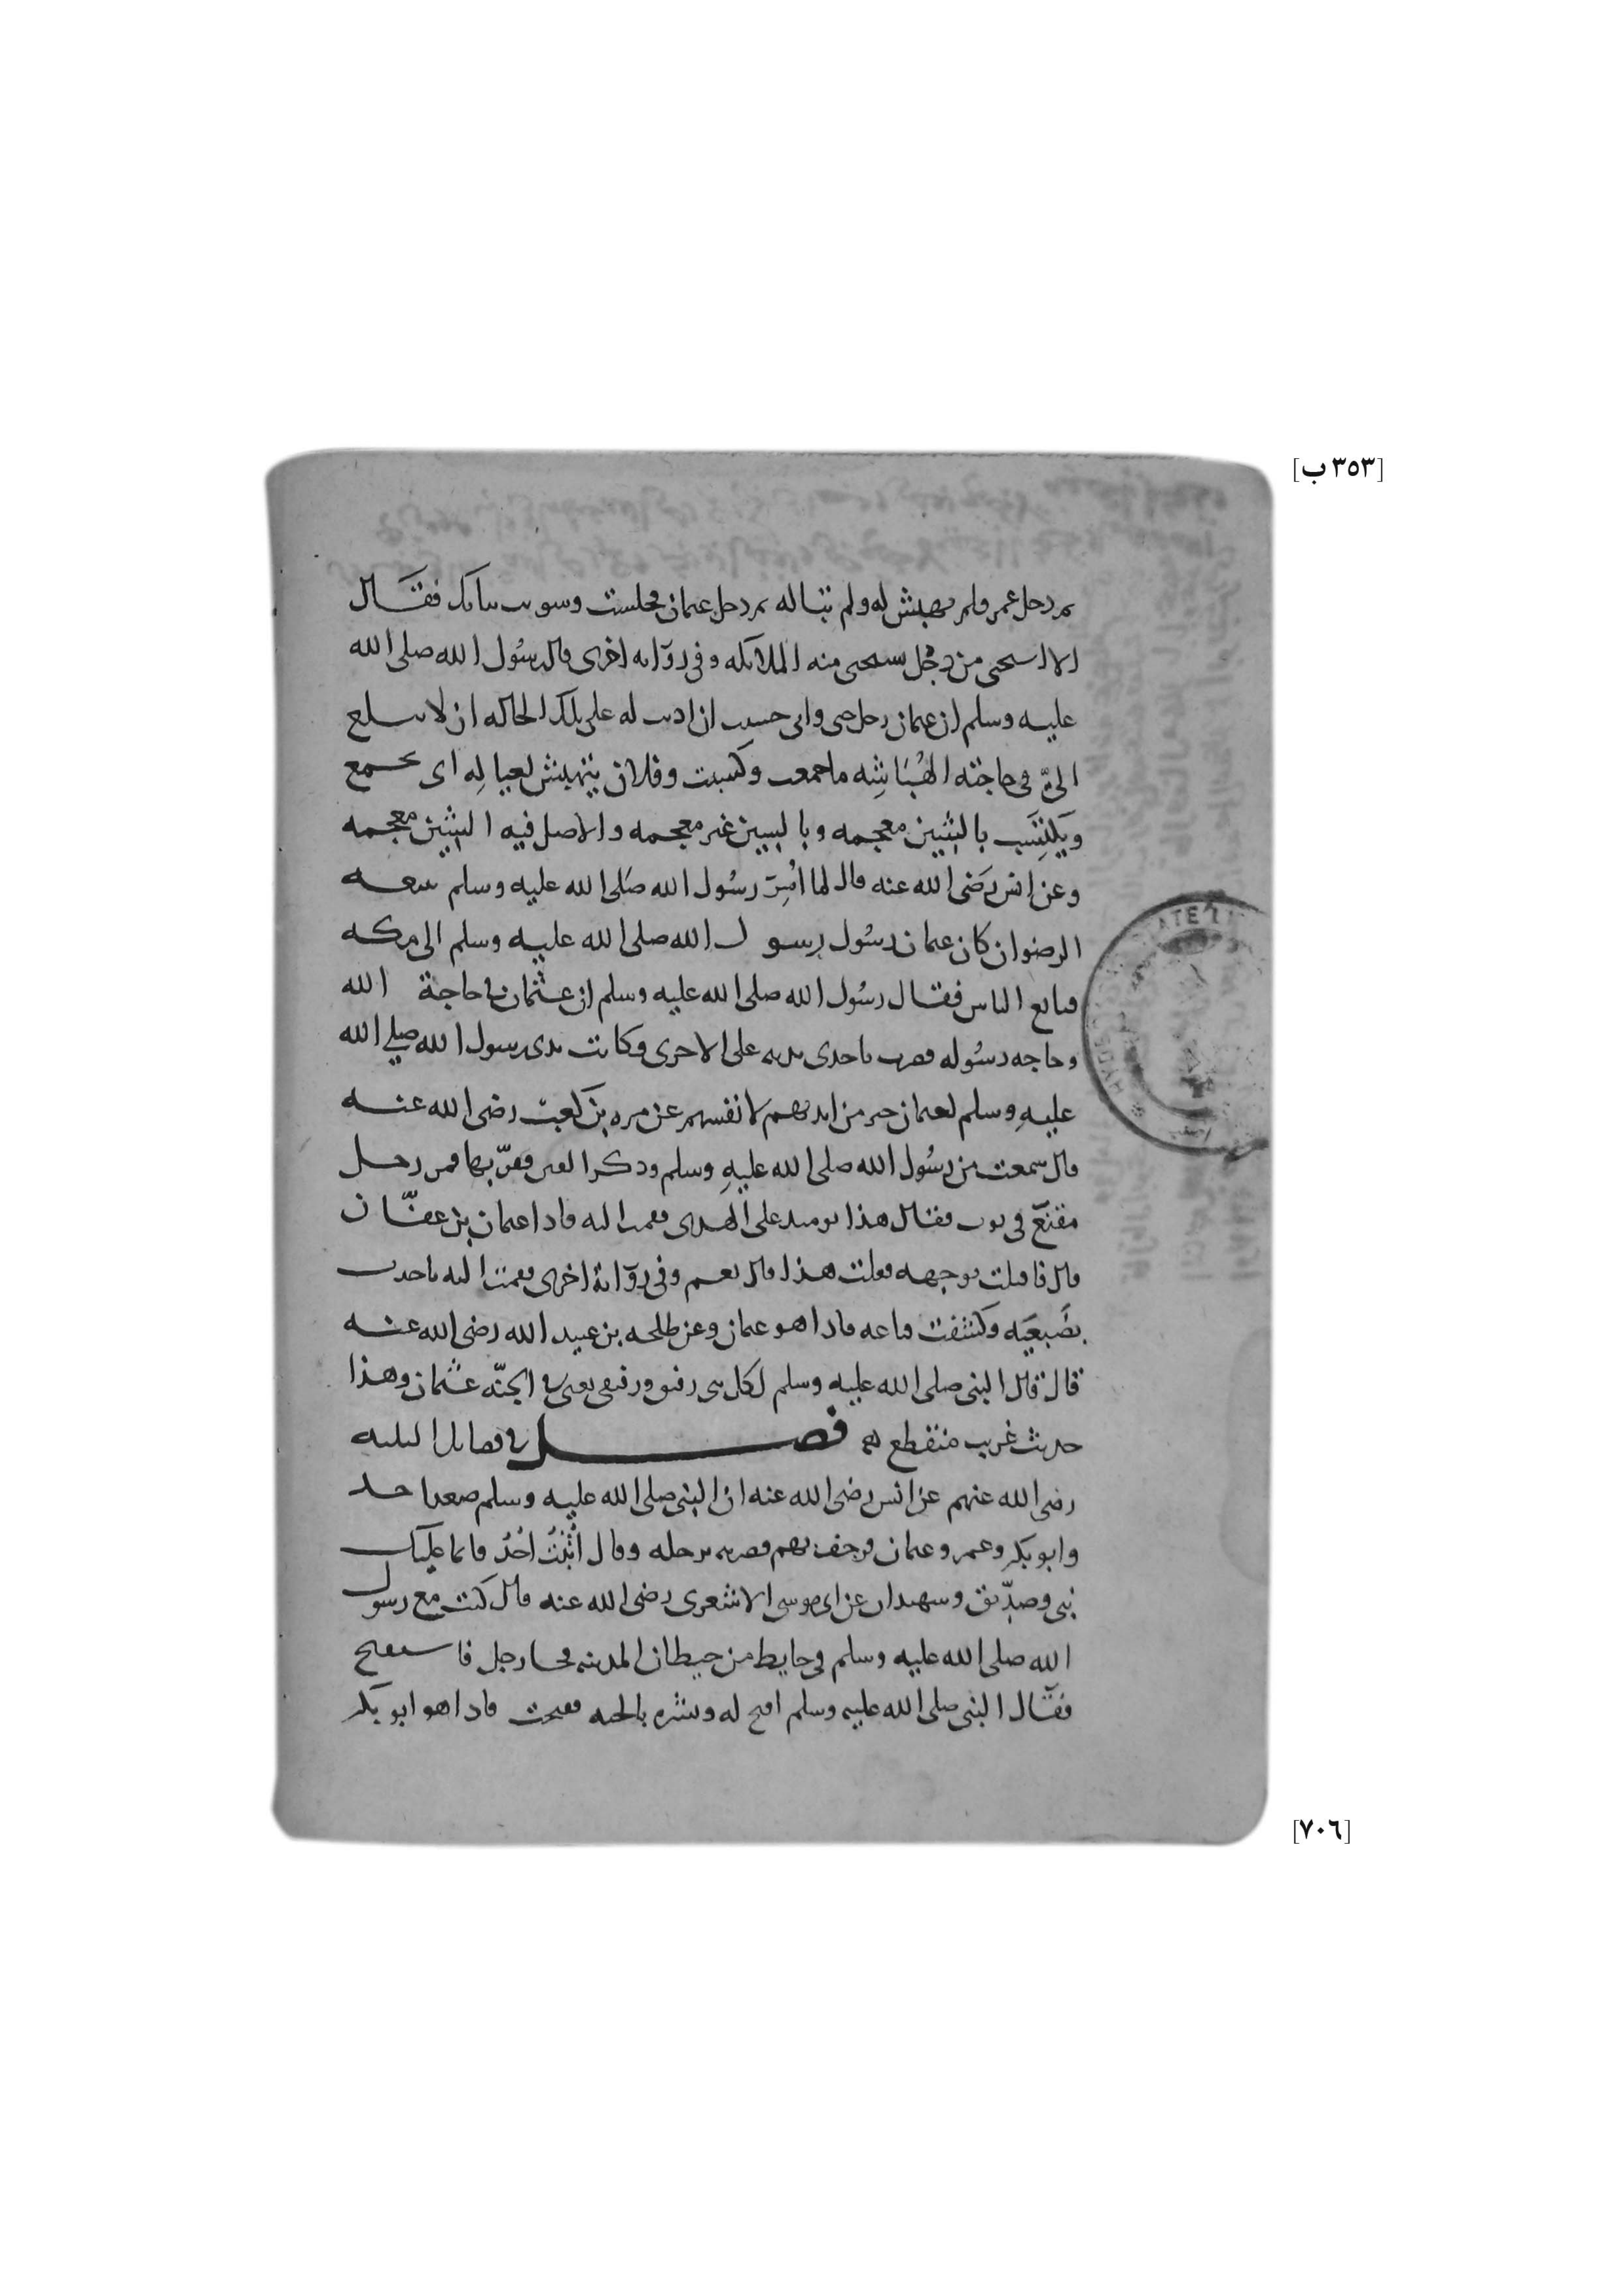 [٣٥٣ ب]
ثم دخل عمر ولم يهبش له ولم تباله ثم دخل عثمان فجلست وسويت ثيابك فقال
الا استحي من رجل تستحي منه الملائكه وفي روايه اخرى قال رسُول الله صلى الله
عليه وسلم ان عثمان رجل حيي واني خشيت ان اذنت له على تلك الحاله ان لا يبلغ
اليّ في حاجته الهُبَاشِه ما جمعت وكسبت وفلان يتهبش لعياله اى يجمع
ويكتسب بالشين معجمه وبالسين غير معجمه والاصل فيه الشين معجمه
وعن انس رَضى الله عنه قال لما اُمِرَ رسُول الله صَلى الله عليه وسلم ببيعه
الرضوان كان عثمان رسُول رسول الله صلى الله عليه وسلم الى مكه
فبايع الناس فقال رسُول الله صلى الله عليه وسلم ان عثمان في حاجة الله
وحاجه رسُوله فضرب باحدى يديه على الاخرى وكانت يدى رسول الله صلى الله
عليهِ وسلم لعثمان خير من ايديهم لانفسهم عن مره بن كَعب رضى الله عنه
قال سمعت من رسُول الله صلى الله عليهِ وسلم وذكر الفتن فقرّبها فمر رجل
مقنّع في ثوب فقال هذا يوميذ على الهدى فقمت اليه فاذا عثمان بن عفّان
قال فاقبلت بوجهه فقلت هذا قال نعم وفي رواية اخرى فقمت اليه فاخذت
بضَبعَيه وكَشفت قناعه فاذا هو عثمان وعن طلحه بن عبيد الله رضى الله عنه
قال قال النبى صلى الله عليه وسلم لكل نبى رفيق ورفيقى يعنى في الجنّه عثمان وهذا
حديث غريب منقطع فصل في فضايل الثلثه
رضى الله عنهم عن انس رضى الله عنه ان النبى صلى الله عليه وسلم صعد احد
وابو بكر وعمر وعثمان فرجف بهم فضربه برجله وقال اُثْبُتْ اُحُدُ فانما عليك
نبى وصدّيق وشهيدان عن ابى موسى الاشعرى رضى الله عنه قال كنت مع رسول
الله صلى الله عليه وسلم في حايط من حيطان المدينه فجا رجل فاستفتح
فقال النبى صلى الله عليه وسلم افتح له وبشره بالجنه ففتحت فاذا هو ابو بكر
[٧٠٦]